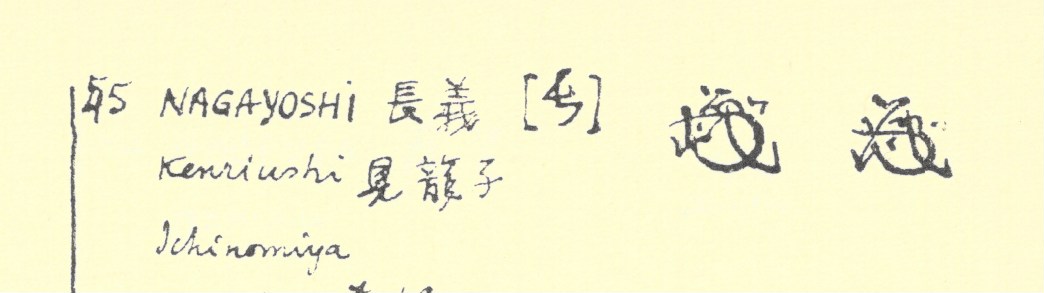 55 NAGAYOSHI 長義
Kenriushi 見龍子
Ichinomiya